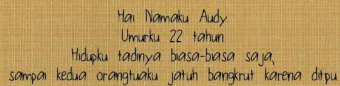 Hai Namaku Audy
Umurku 22 tahun
Hidupku tadinya biasa-biasa saja,
sampai kedua orangtuaku jatuh bangkrut karena ditipu